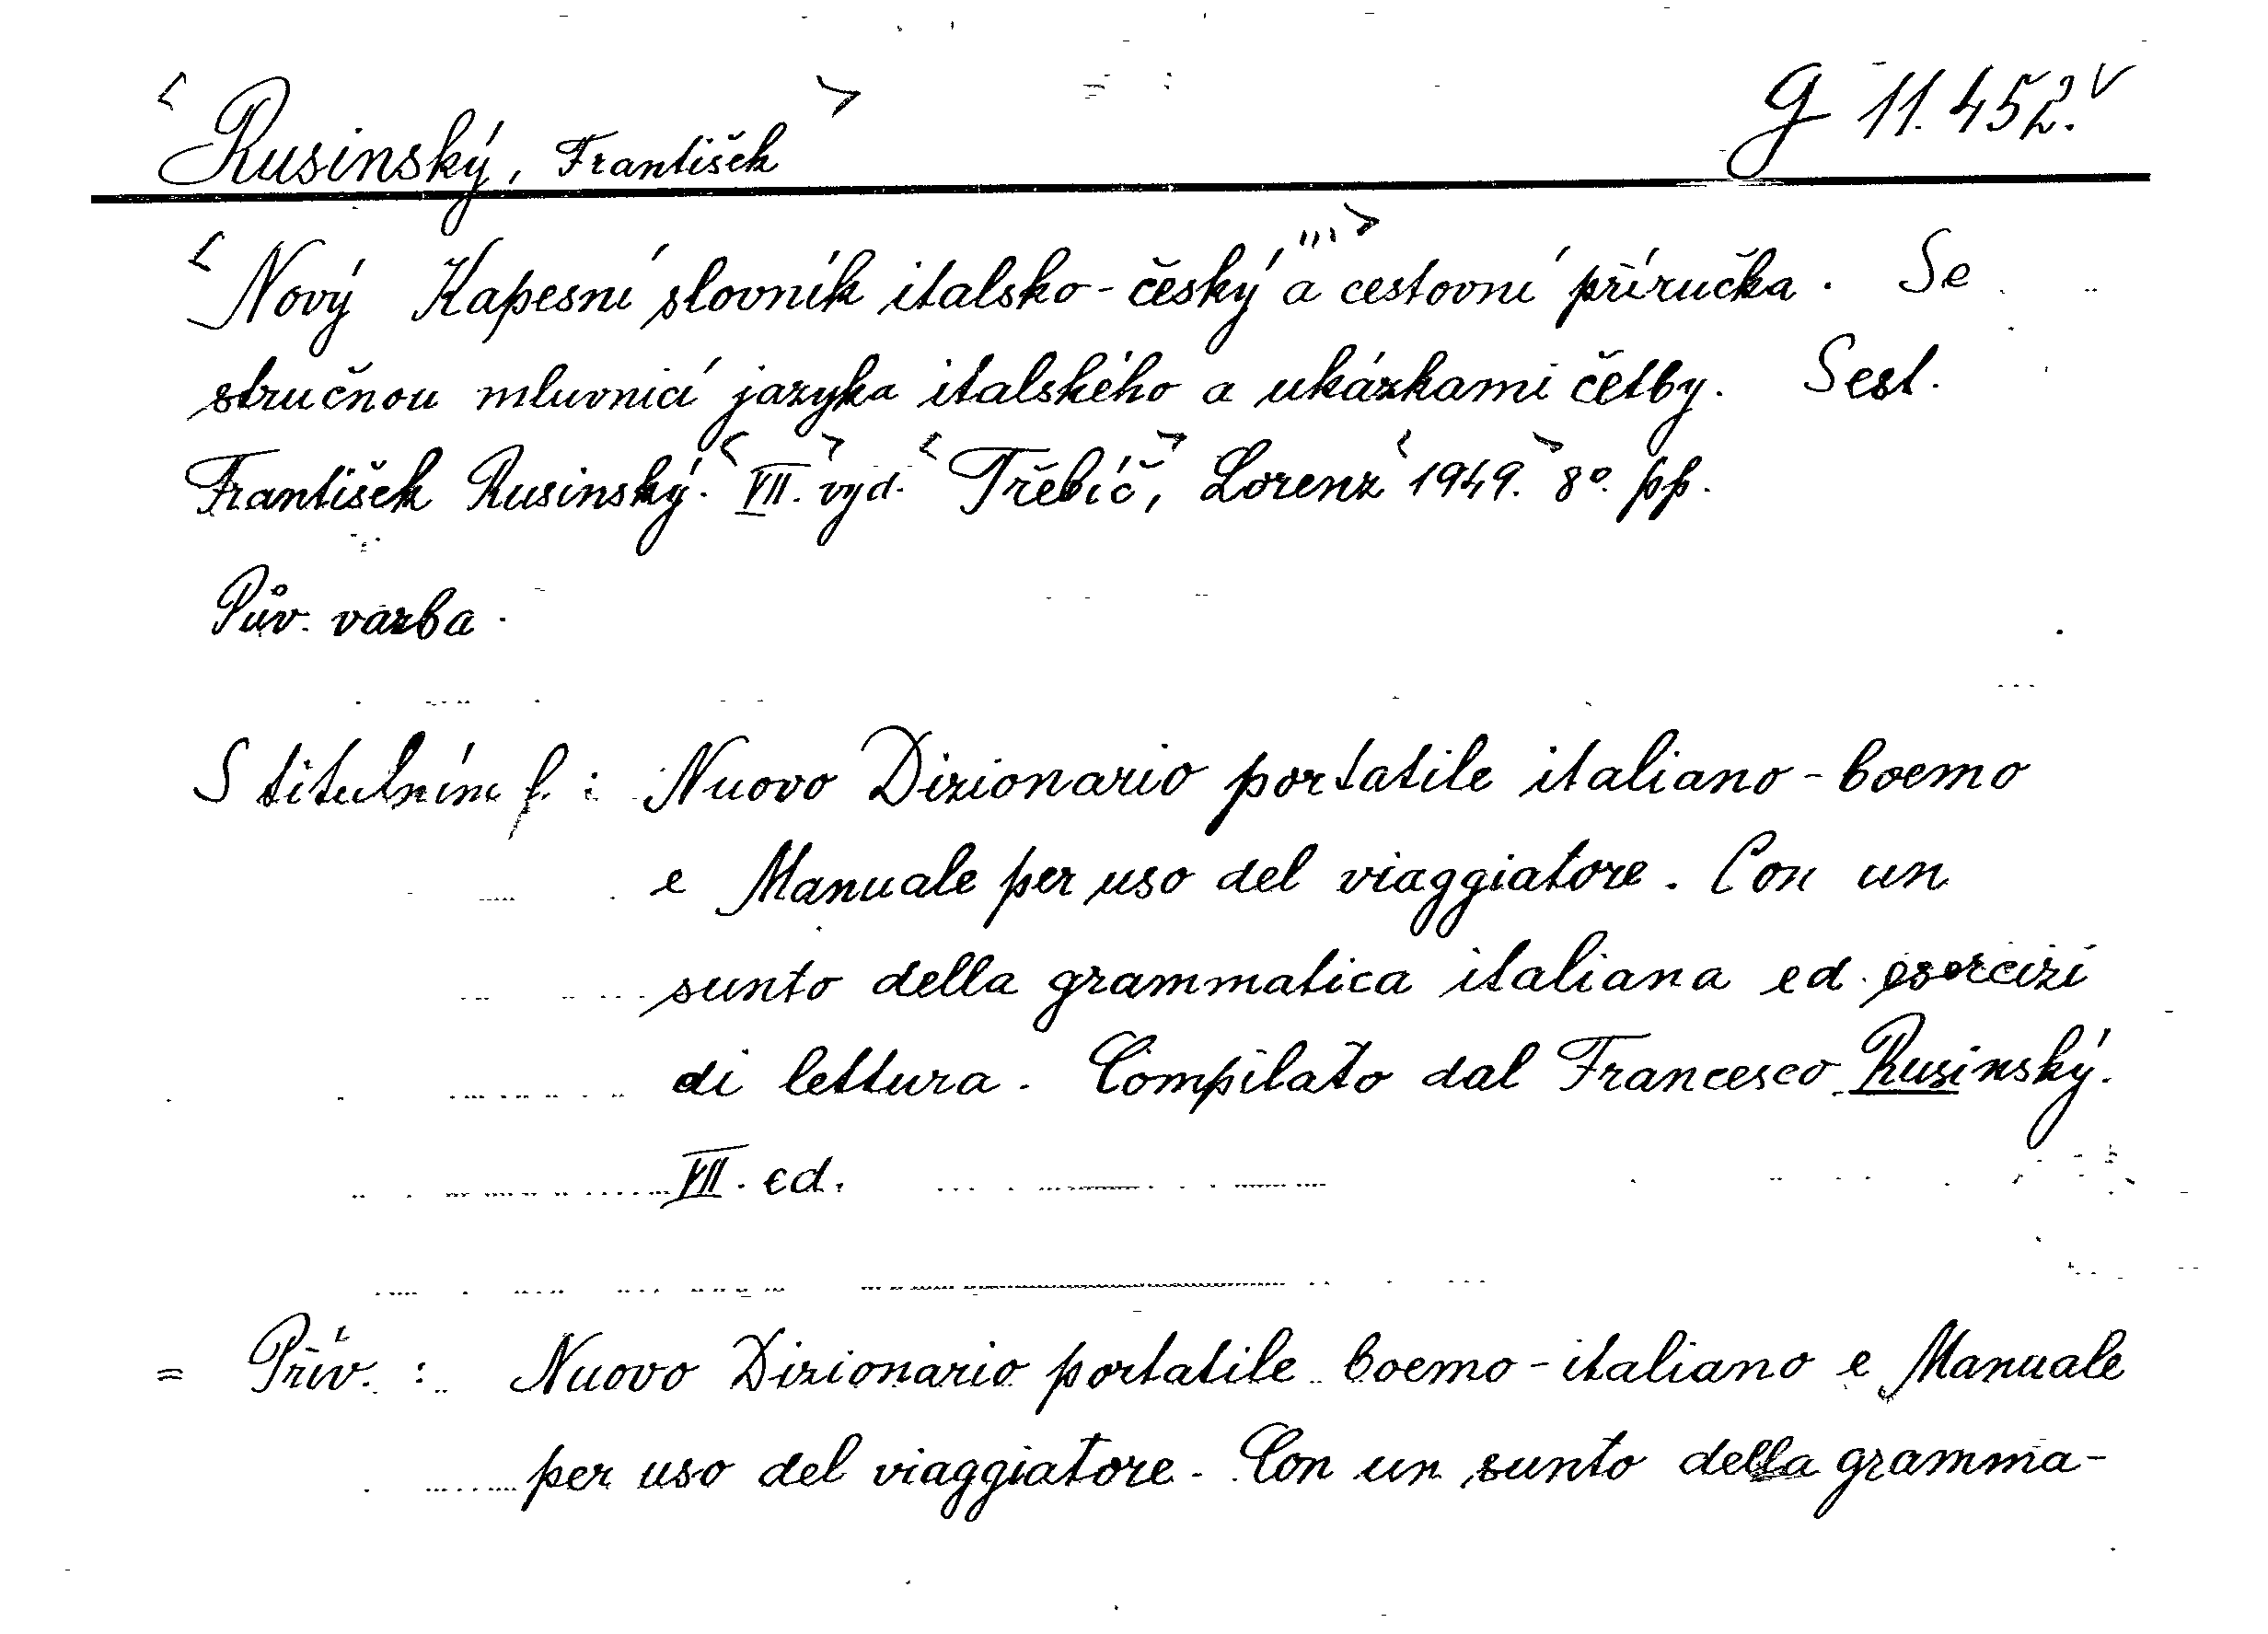 < Rusinský, František > g 11.452.
< Nový Kapesní slovník italsko-český ''' > a cestovní příručka. Se
stručnou mluvnicí jazyka italského a ukázkami četby. Sest.
František Rusinský. < VII. > vyd. < Třebíč >, Lorenz < 1949. > 8º. pp.
Pův. vazba.
S titulním l.: Nuovo Dizionario portatile italiano-boemo
e Manuale per uso del viaggiatore. Con un
sunto della grammatica italiana ed esercizi
di lettura. Compilato dal Francesco Rusinský.
VII. ed.
= Přív.: Nuovo Dizionario portatile boemo-italiano e Manuale
per uso del viaggiatore. Con un sunto della gramma-